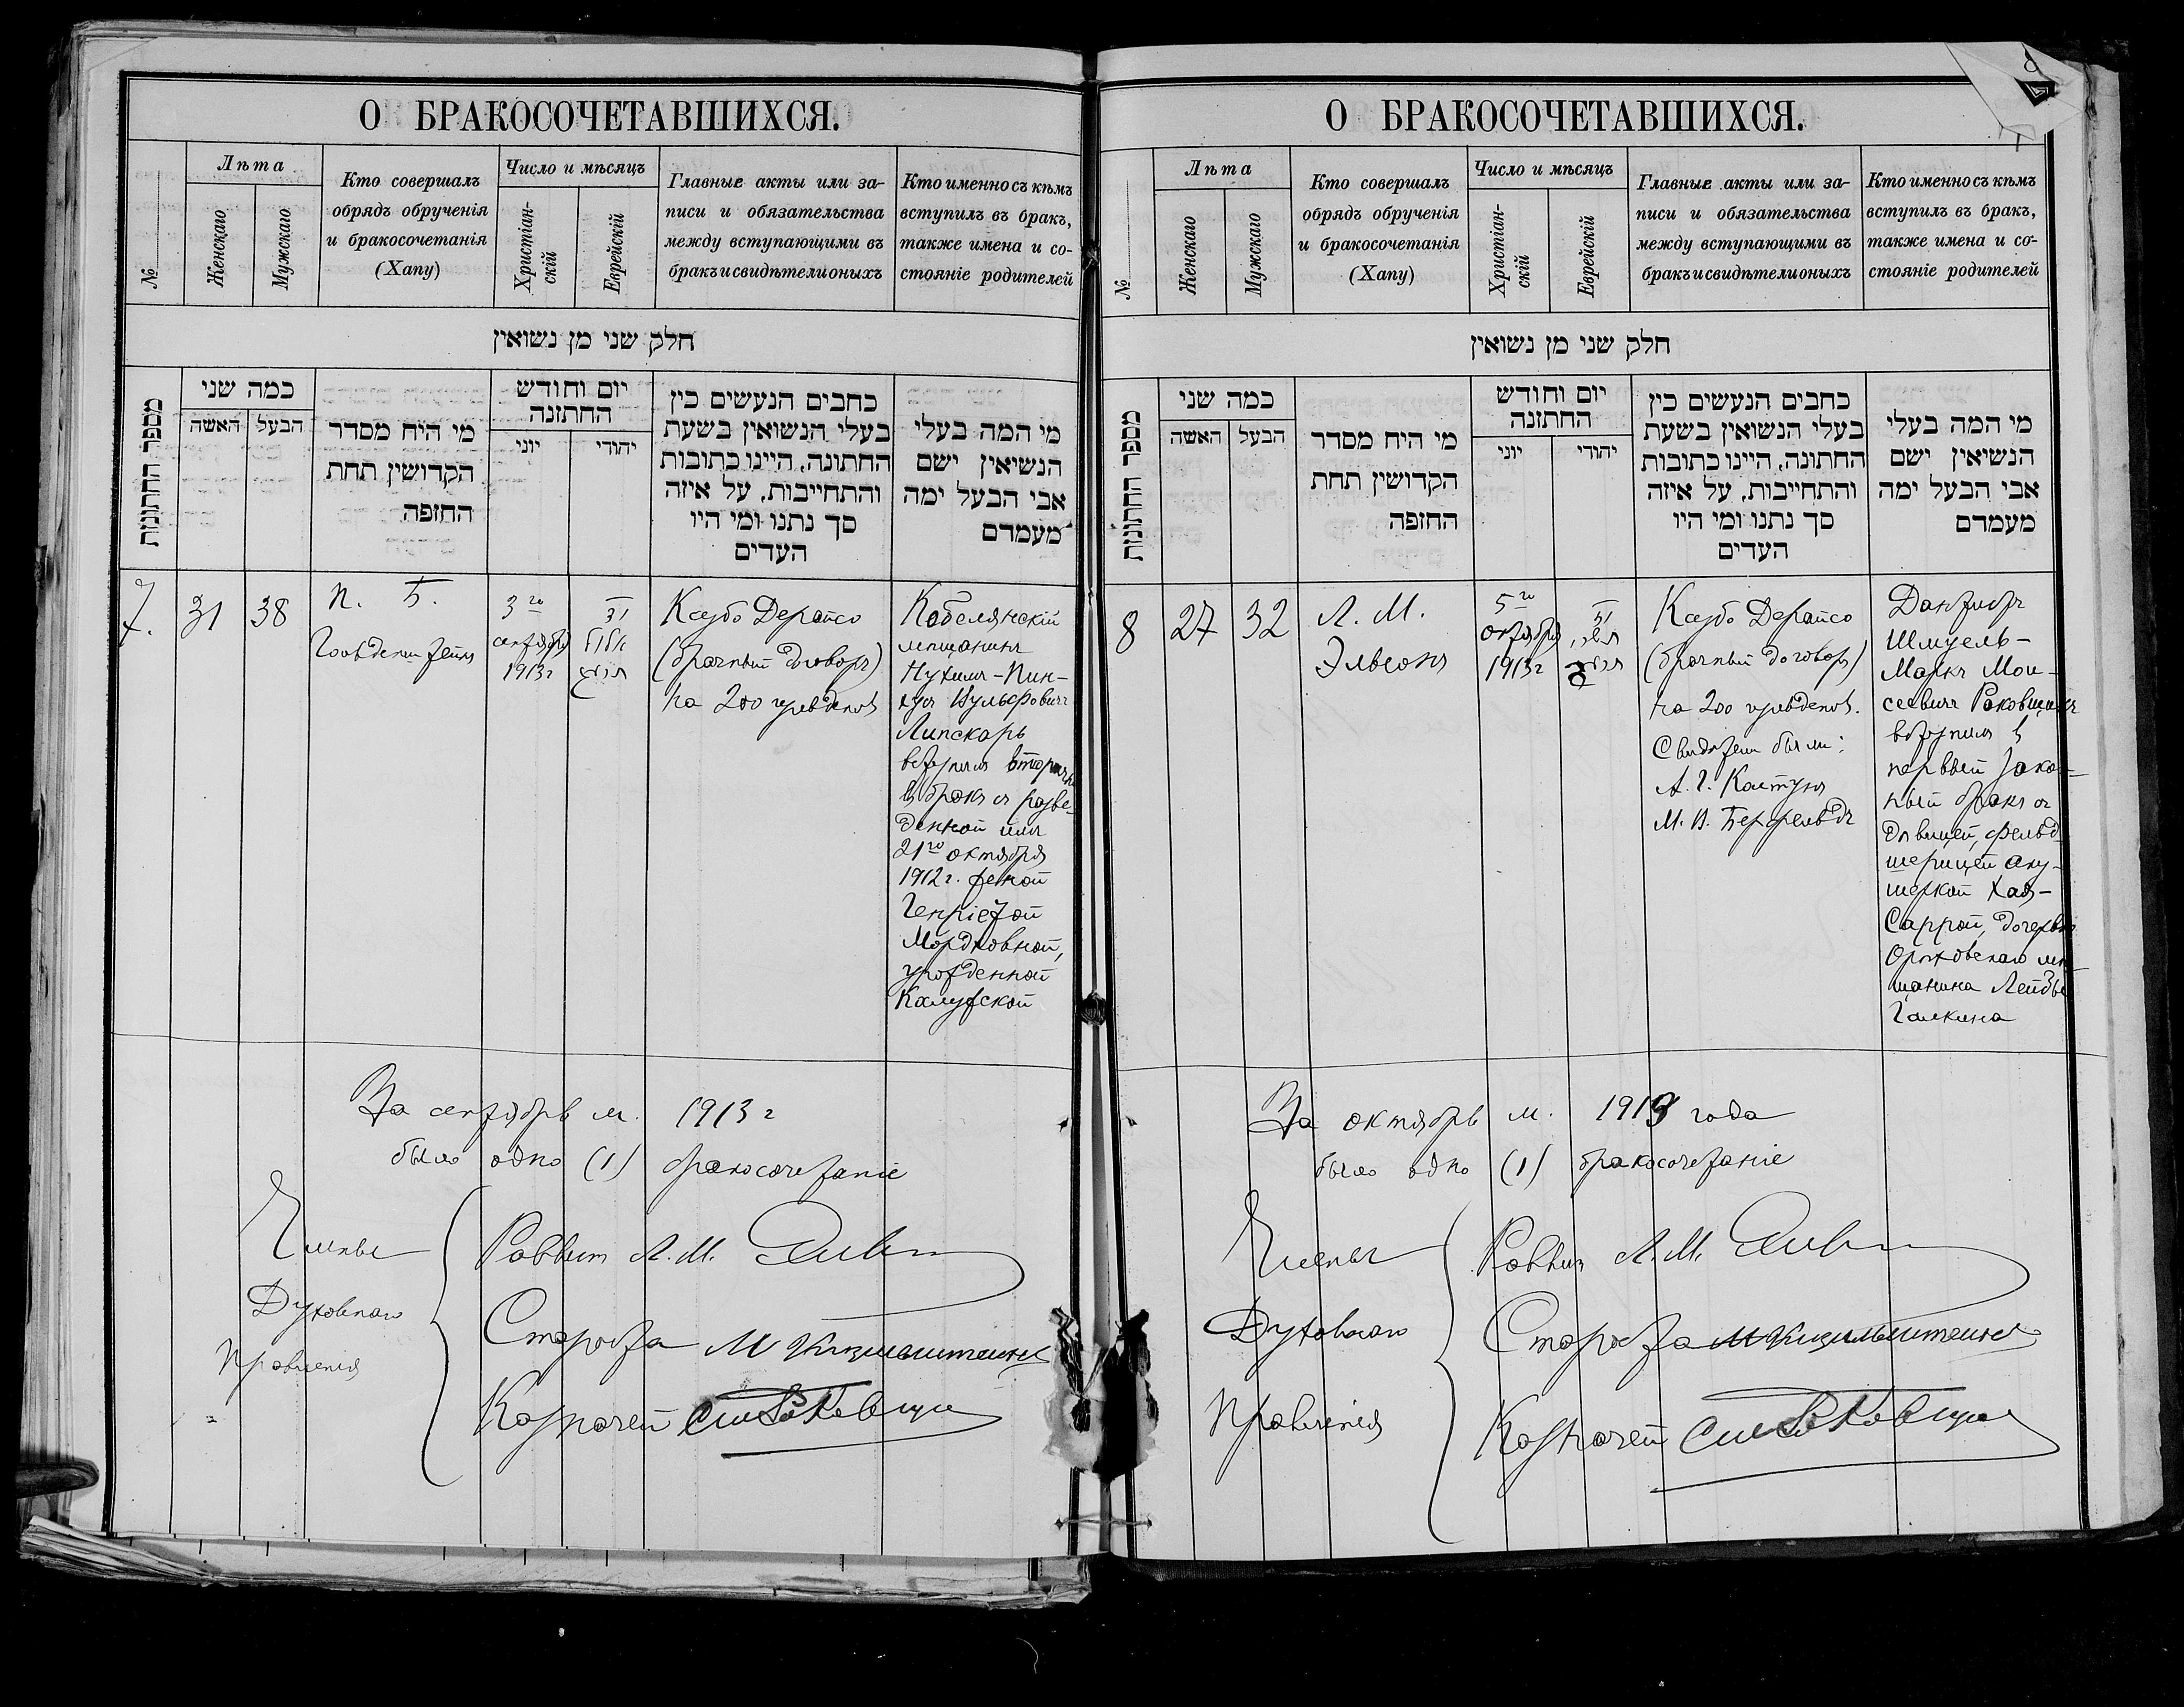 О БРАКОСОЧЕТАВШИХСЯ.
№
Лѣта
Женскаго
Мужскаго
Кто совершалъ
обрядъ обрученія
и бракосочетанія
(Хапу)
Число и мѣсяцъ
Христіан-
скій
Еврейскій
Главные акты или за-
писи и обязательства
между вступающими въ
бракъ и свидѣтели оныхъ
Кто именно съ кѣмъ
вступилъ въ бракъ,
также имена и со-
стояніе родителей
חלק שני מן נשואין
מספר החתונות
כמה שני
האשה
הבעל
מי היח מסדר
הקדושין תחת
החזפה
יום וחודש
החתונה
יוני
יהודי
כחבים הנעשים כין
בעלי הנשואין בשעת
החתונה, היינו כתובות
והתחייבות, על איזה
סך נתנו ומי היו
העדים
מי המה בעלי
הנשיאין ישם
אבי הבעל ימה
מעמדם
7.
31
38
П. Б.
3го
сентября
1913г
Ксубо Дерайсо
(брачный договоръ)
на 200 гульденовъ
Кобелянскій
мѣщанинъ
Нухимъ-Пин-
хусъ Вульфовичъ
Липскаръ
вступилъ вторично
въ бракъ съ разве-
денной имъ
21го октября
1912г. женой
Генріетой
Мордковной,
урожденной
Калужской
За сентябрь м. 1913 г
было одно (1) бракосочетаніе
Члены
Духовнаго
Правленія
Раввин Л. М.
Староста М
Казначей
О БРАКОСОЧЕТАВШИХСЯ.
№
Лѣта
Женскаго
Мужскаго
Кто совершалъ
обрядъ обрученія
и бракосочетанія
(Хапу)
Число и мѣсяцъ
Христіан-
скій
Еврейскій
Главные акты или за-
писи и обязательства
между вступающими въ
бракъ и свидѣтели оныхъ
Кто именно съ кѣмъ
вступилъ въ бракъ,
также имена и со-
стояніе родителей
חלק שני מן נשואין
מספר החתונות
כמה שני
האשה
הבעל
מי היח מסדר
הקדושין תחת
החזפה
יום וחודש
החתונה
יוני
יהודי
כחבים הנעשים כין
בעלי הנשואין בשעת
החתונה, היינו כתובות
והתחייבות, על איזה
סך נתנו ומי היו
העדים
מי המה בעלי
הנשיאין ישם
אבי הבעל ימה
מעמדם
8
27
32
Л. М.
5го
октября
1913г
Ксубо Дерайсо
(брачный договоръ)
на 200 гульденов.
Свидѣтели были:
А. Г.
М. И.
Шмуель-
Маркъ Мои-
сеевичъ Раковщикъ
вступилъ въ
первый закон-
ный бракъ съ
дѣвицей, фельд-
шерицей аку-
шеркой Хая-
Саррой, дочерью
Орловскаго мѣ-
щанина Лейбы
Галкина
За октябрь м. 1913 года
было одно (1) бракосочетаніе
Члены
Духовнаго
Правленія
Раввин Л. М.
Староста М
Казначей